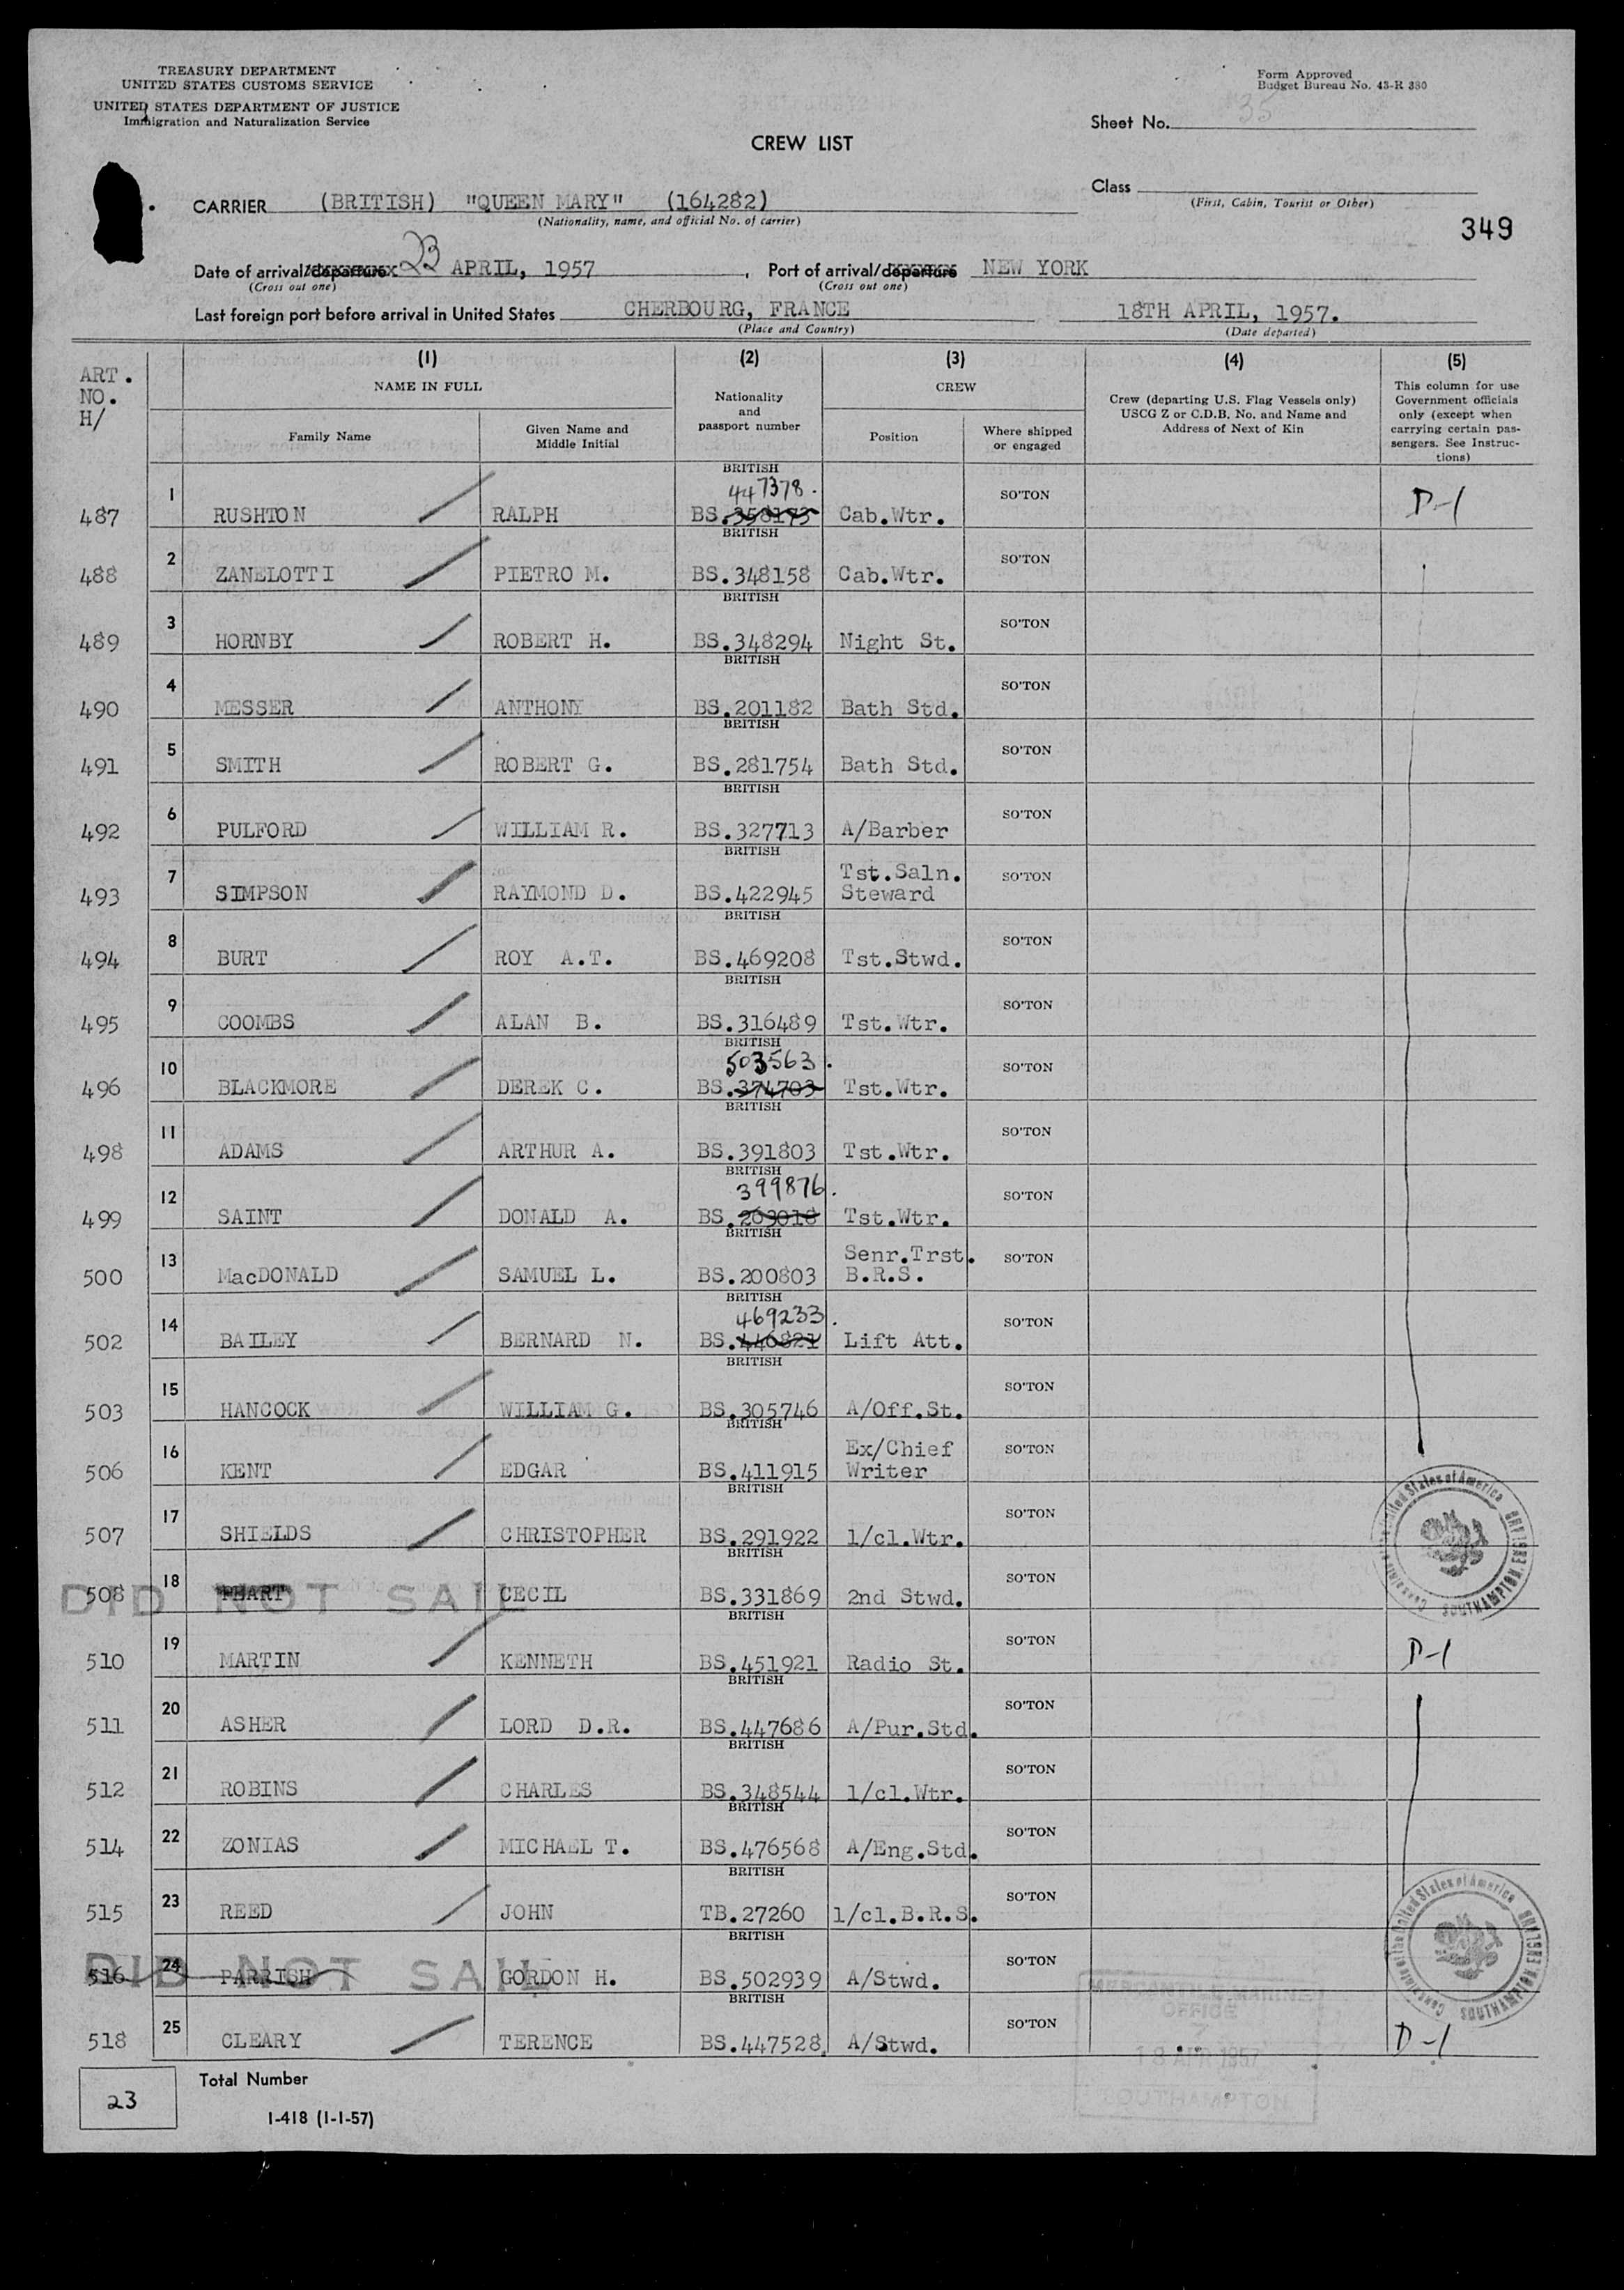 TREASURY DEPARTMENT
UNITED STATES CUSTOMS SERVICE
UNITED STATES DEPARTMENT OF JUSTICE
Immigration and Naturalization Service
Form Approved
Budget Bureau No. 43-R 380
Sheet No. 35
CREW LIST
Class
(First, Cabin, Tourist or Other)
CARRIER (BRITISH) "QUEEN MARY" (164282)
(Nationality, name, and official No. of carrier)
349
Date of arrival/departure 23 APRIL, 1957, Port of arrival/departure NEW YORK
(Cross out one) (Cross out one)
Last foreign port before arrival in United States CHERBOURG, FRANCE 18TH APRIL, 1957.
(Place and Country) (Date departed)
ART. NO. H/
(1) NAME IN FULL
Family Name
Given Name and Middle Initial
(2) Nationality and passport number
(3) CREW
Position
Where shipped or engaged
(4) Crew (departing U.S. Flag Vessels only) USCG Z or C.D.B. No. and Name and Address of Next of Kin
(5) This column for use Government officials only (except when carrying certain passengers. See Instructions)
487 1 RUSHTON RALPH BRITISH 447378. BS.358173 Cab.Wtr. SO'TON D-1
488 2 ZANELOTTI PIETRO M. BRITISH BS.348158 Cab.Wtr. SO'TON
489 3 HORNBY ROBERT H. BRITISH BS.348294 Night St. SO'TON
490 4 MESSER ANTHONY BRITISH BS.201182 Bath Std. SO'TON
491 5 SMITH ROBERT G. BRITISH BS.281754 Bath Std. SO'TON
492 6 PULFORD WILLIAM R. BRITISH BS.327713 A/Barber SO'TON
493 7 SIMPSON RAYMOND D. BRITISH BS.422945 Tst.Saln. Steward SO'TON
494 8 BURT ROY A.T. BRITISH BS.469208 Tst.Stwd. SO'TON
495 9 COOMBS ALAN B. BRITISH BS.316489 Tst.Wtr. SO'TON
496 10 BLACKMORE DEREK C. BRITISH 503563. BS.374703 Tst.Wtr. SO'TON
498 11 ADAMS ARTHUR A. BRITISH BS.391803 Tst.Wtr. SO'TON
499 12 SAINT DONALD A. BRITISH 399876. BS.263018 Tst.Wtr. SO'TON
500 13 MacDONALD SAMUEL L. BRITISH BS.200803 Senr.Trst. B.R.S. SO'TON
502 14 BAILEY BERNARD N. BRITISH 469233. BS.440821 Lift Att. SO'TON
503 15 HANCOCK WILLIAM G. BRITISH BS.305746 A/Off.St. SO'TON
506 16 KENT EDGAR BRITISH BS.411915 Ex/Chief Writer SO'TON
507 17 SHIELDS CHRISTOPHER BRITISH BS.291922 1/cl.Wtr. SO'TON
508 18 CECIL BRITISH BS.331869 2nd Stwd. SO'TON
DID NOT SAIL
510 19 MARTIN KENNETH BRITISH BS.451921 Radio St. SO'TON D-1
511 20 ASHER LORD D.R. BRITISH BS.447686 A/Pur.Std. SO'TON
512 21 ROBINS CHARLES BRITISH BS.348544 1/cl.Wtr. SO'TON
514 22 ZONIAS MICHAEL T. BRITISH BS.476568 A/Eng.Std. SO'TON
515 23 REED JOHN BRITISH TB.27260 1/cl.B.R.S. SO'TON
516 24 PARRISH GORDON H. BRITISH BS.502939 A/Stwd. SO'TON
DID NOT SAIL
518 25 CLEARY TERENCE BRITISH BS.447528 A/Stwd. SO'TON D-1
MERCANTILE MARINE
OFFICE
7
18 APR 1957
SOUTHAMPTON
23 Total Number
I-418 (1-1-57)